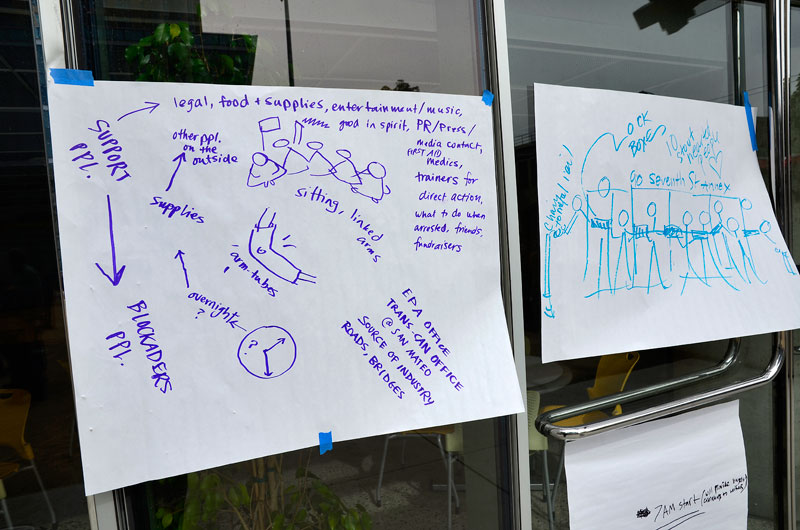 legal, food + supplies, entertainment/music,
good in spirit, PR/Press/
media contact,
FIRST AID
medics,
trainers for
direct action,
what to do when
arrested, friends,
fundraisers
SUPPORT
PPL.
other ppl.
on the
outside
supplies
sitting, linked
arms
arm-tubes
overnight
?
?
BLOCKADERS
PPL.
EPA OFFICE
TRANS-CAN OFFICE
@ SAN MATEO
SOURCE OF INDUSTRY
ROADS, BRIDGES
OCK
BOXES
10
people
90 seventh St. annex
7AM start